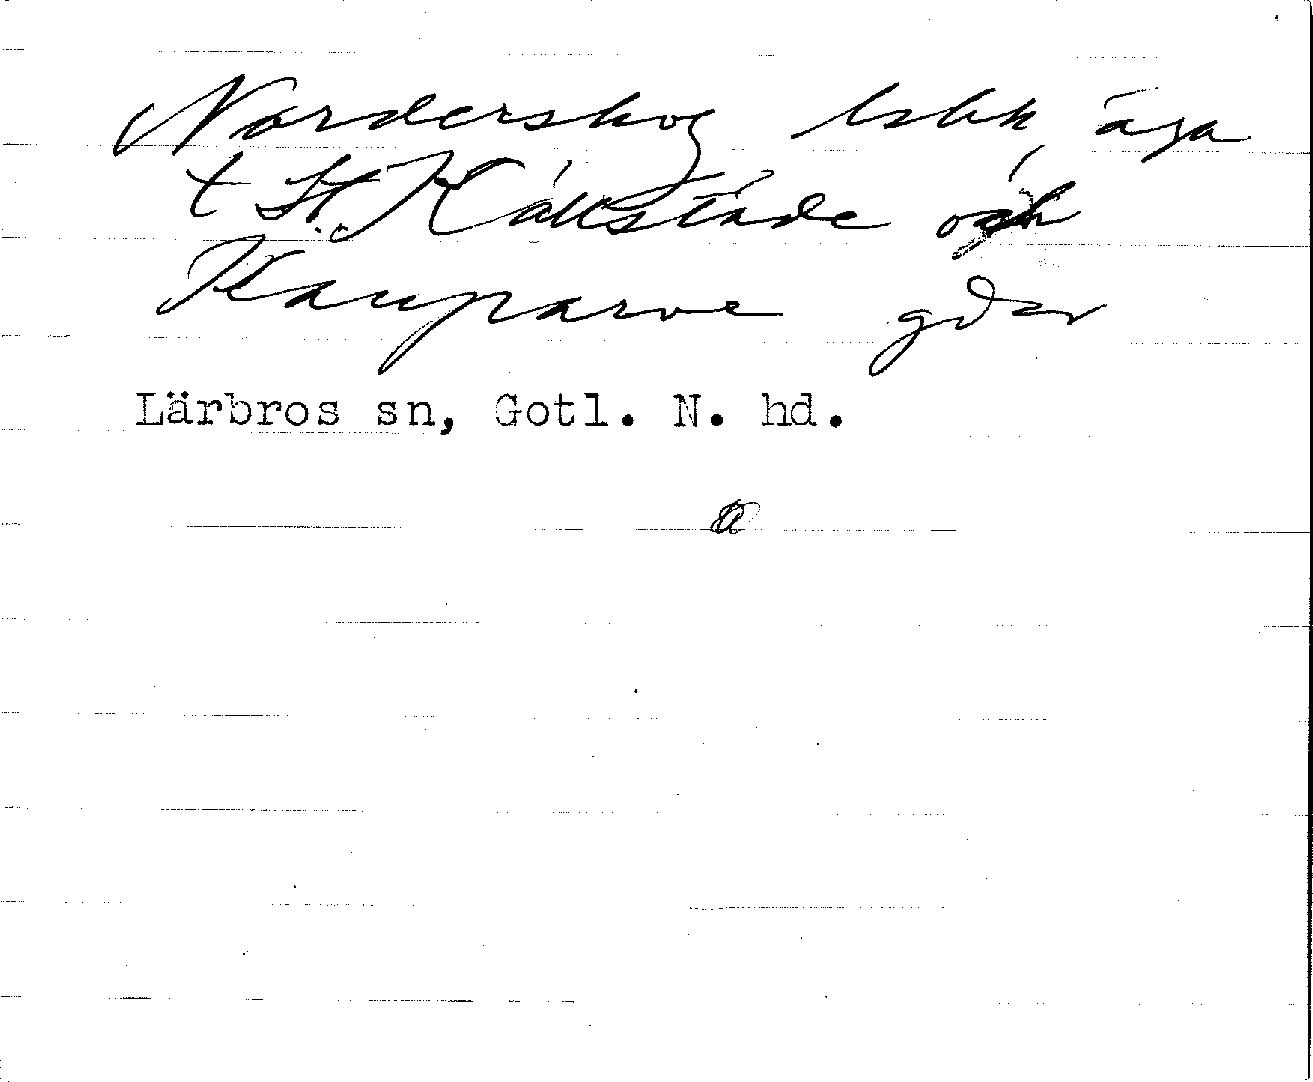 Norderskog lskh, äga
t St. Källstäde och
Kauparve gdar
Lärbros sn, Gotl. N. hd.